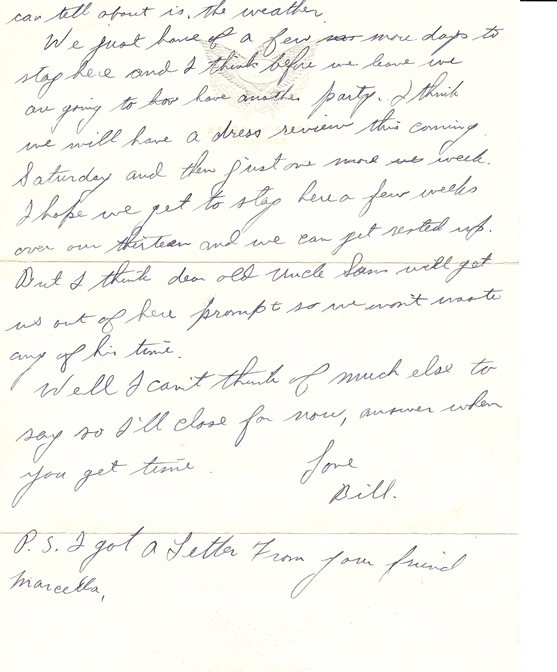 can tell about is, the weather.
We just have of a few more days to
stay here and I think before we leave we
are going to have another party. I think
we will have a dress review this coming
Saturday and then just one more we week.
I hope we get to stay here a few weeks
over our thirteen and we can get rested up.
But I think dear old Uncle Sam will get
us out of here prompt so we won't waste
any of his time.
Well I can't think of much else to
say so I'll close for now, answer when
you get time.
Love
Bill.
P.S. I got a Letter From your friend
Marcella,